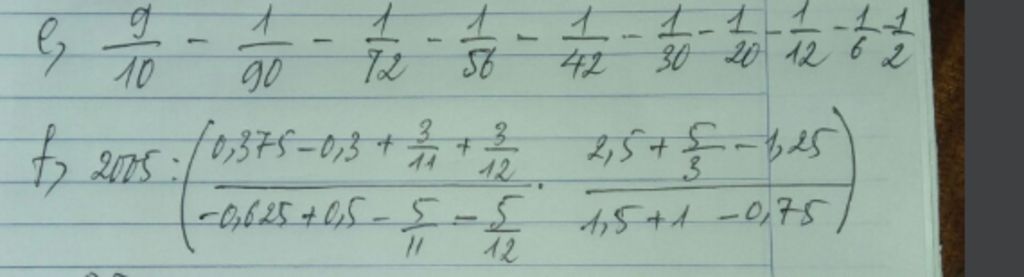 e, 9/10 - 1/90 - 1/72 - 1/56 - 1/42 - 1/30 - 1/20 - 1/12 - 1/6 - 1/2
f, 2005 : ( (0,375 - 0,3 + 3/11 + 3/12) / (-0,625 + 0,5 - 5/11 - 5/12) . (2,5 + 5/3 - 1,25) / (1,5 + 1 - 0,75) )